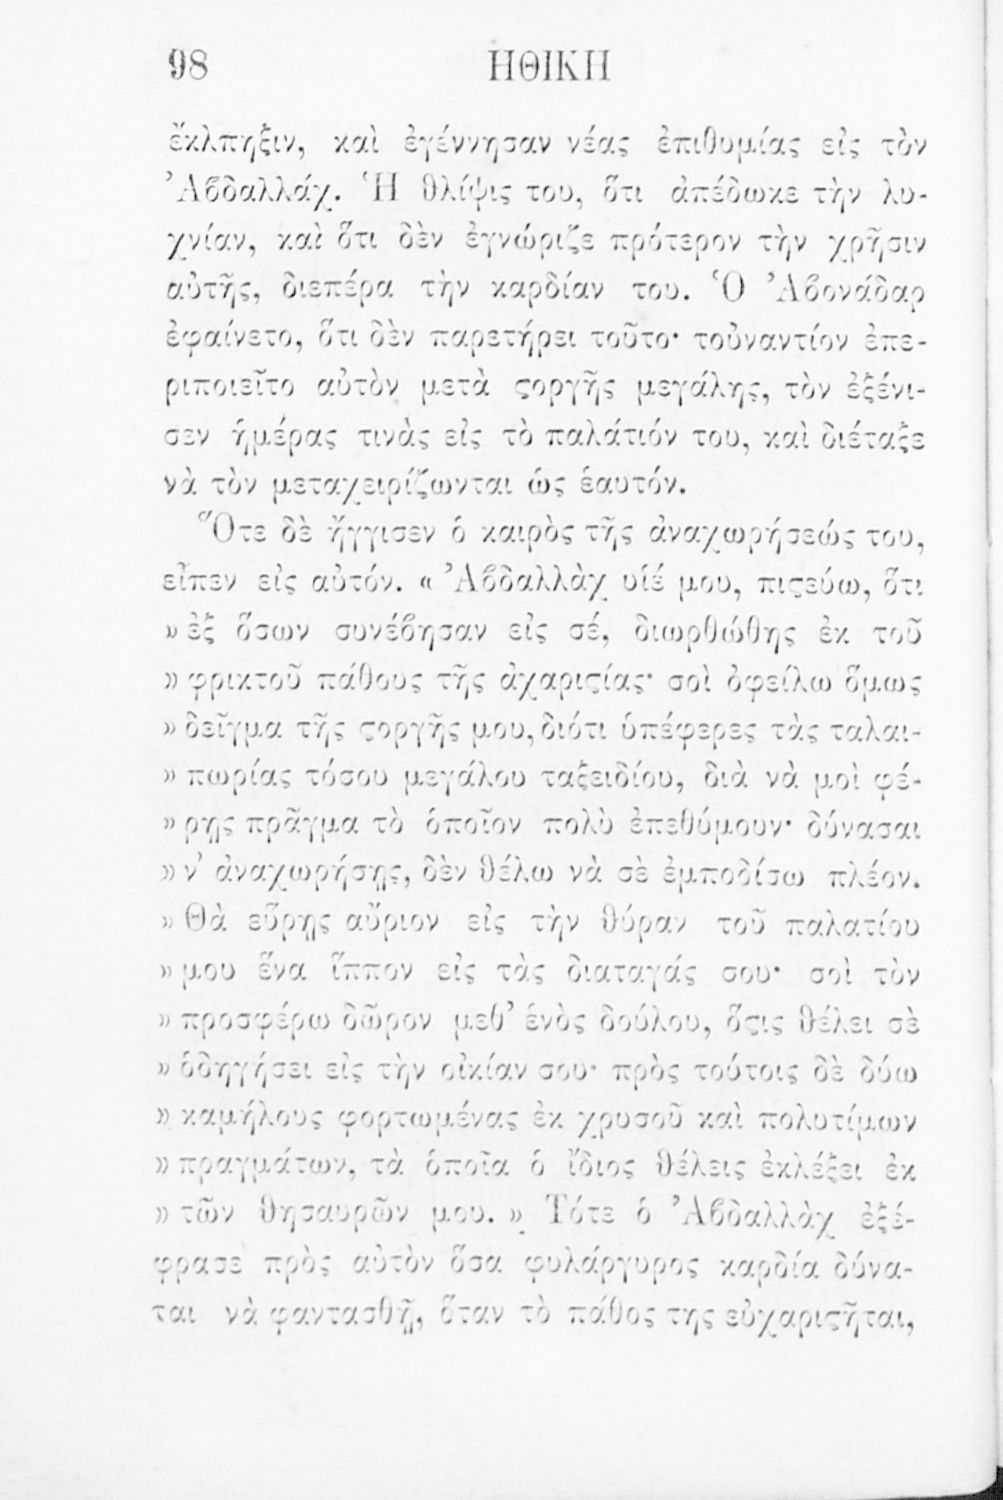 98 ΗΘΙΚΗ
ἔκλπηξιν, καὶ ἐγέννησαν νέας ἐπιθυμίας εἰς τὸν
Ἀβδαλλάχ. Ἡ θλίψις του, ὅτι ἀπέδωκε τὴν λυ-
χνίαν, καὶ ὅτι δὲν ἐγνώριζε πρότερον τὴν χρῆσιν
αὐτῆς, διεπέρα τὴν καρδίαν του. Ὁ Ἀβονάδαρ
ἐφαίνετο, ὅτι δὲν παρετήρει τοῦτο· τοὐναντίον ἐπε-
ριποιεῖτο αὐτὸν μετὰ ϛοργῆς μεγάλης, τὸν ἐξένι-
σεν ἡμέρας τινὰς εἰς τὸ παλάτιόν του, καὶ διέταξε
νὰ τὸν μεταχειρίζωνται ὡς ἑαυτόν.
Ὅτε δὲ ἤγγισεν ὁ καιρὸς τῆς ἀναχωρήσεώς του,
εἶπεν εἰς αὐτόν. « Ἀβδαλλὰχ υἱέ μου, πιϛεύω, ὅτι
» ἐξ ὅσων συνέβησαν εἰς σέ, διωρθώθης ἐκ τοῦ
» φρικτοῦ πάθους τῆς ἀχαριϛίας· σοὶ ὀφείλω ὅμως
» δεῖγμα τῆς ϛοργῆς μου, διότι ὑπέφερες τὰς ταλαι-
» πωρίας τόσου μεγάλου ταξειδίου, διὰ νὰ μοὶ φέ-
» ρῃς πρᾶγμα τὸ ὁποῖον πολὺ ἐπεθύμουν· δύνασαι
» ν' ἀναχωρήσῃς, δὲν θέλω νὰ σὲ ἐμποδίσω πλέον.
» Θὰ εὕρῃς αὔριον εἰς τὴν θύραν τοῦ παλατίου
» μου ἕνα ἵππον εἰς τὰς διαταγάς σου· σοὶ τὸν
» προσφέρω δῶρον μεθ' ἑνὸς δούλου, ὅϛις θέλει σὲ
» ὁδηγήσει εἰς τὴν οἰκίαν σου· πρὸς τούτοις δὲ δύω
» καμήλους φορτωμένας ἐκ χρυσοῦ καὶ πολυτίμων
» πραγμάτων, τὰ ὁποῖα ὁ ἴδιος θέλεις ἐκλέξει ἐκ
» τῶν θησαυρῶν μου. » Τότε ὁ Ἀβδαλλὰχ ἐξέ-
φρασε πρὸς αὐτὸν ὅσα φυλάργυρος καρδία δύνα-
ται νὰ φαντασθῇ, ὅταν τὸ πάθος της εὐχαριϛῆται,